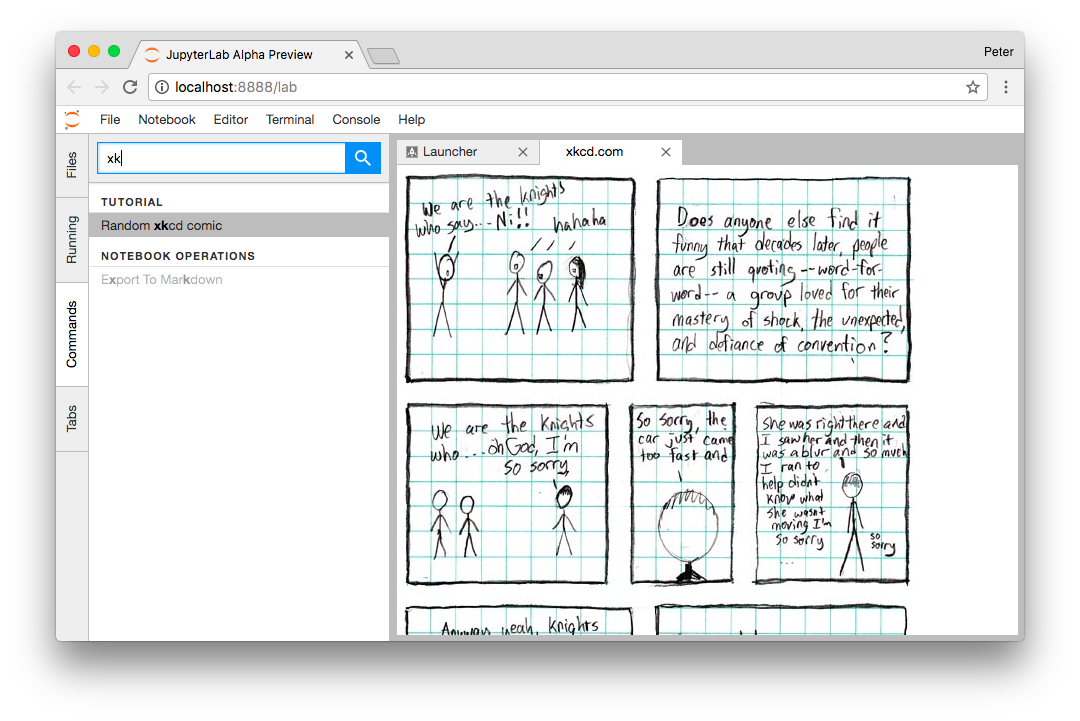 JupyterLab Alpha Preview
Peter
localhost:8888/lab
File Notebook Editor Terminal Console Help
Files
Running
Commands
Tabs
xk
TUTORIAL
Random xkcd comic
NOTEBOOK OPERATIONS
Export To Markdown
Launcher
xkcd.com
We are the Knights
who say... Ni!!
hahaha
Does anyone else find it
funny that decades later, people
are still quoting --word-for-
word-- a group loved for their
mastery of shock, the unexpected,
and defiance of convention?
We are the Knights
who ... oh God, I'm
so sorry,
So sorry, the
car just came
too fast and
She was right there and
I saw her and then it
was a blur and so much
I ran to
help didn't
know what
she wasn't
moving I'm
so sorry
...
so
sorry
Anyway yeah, Knights